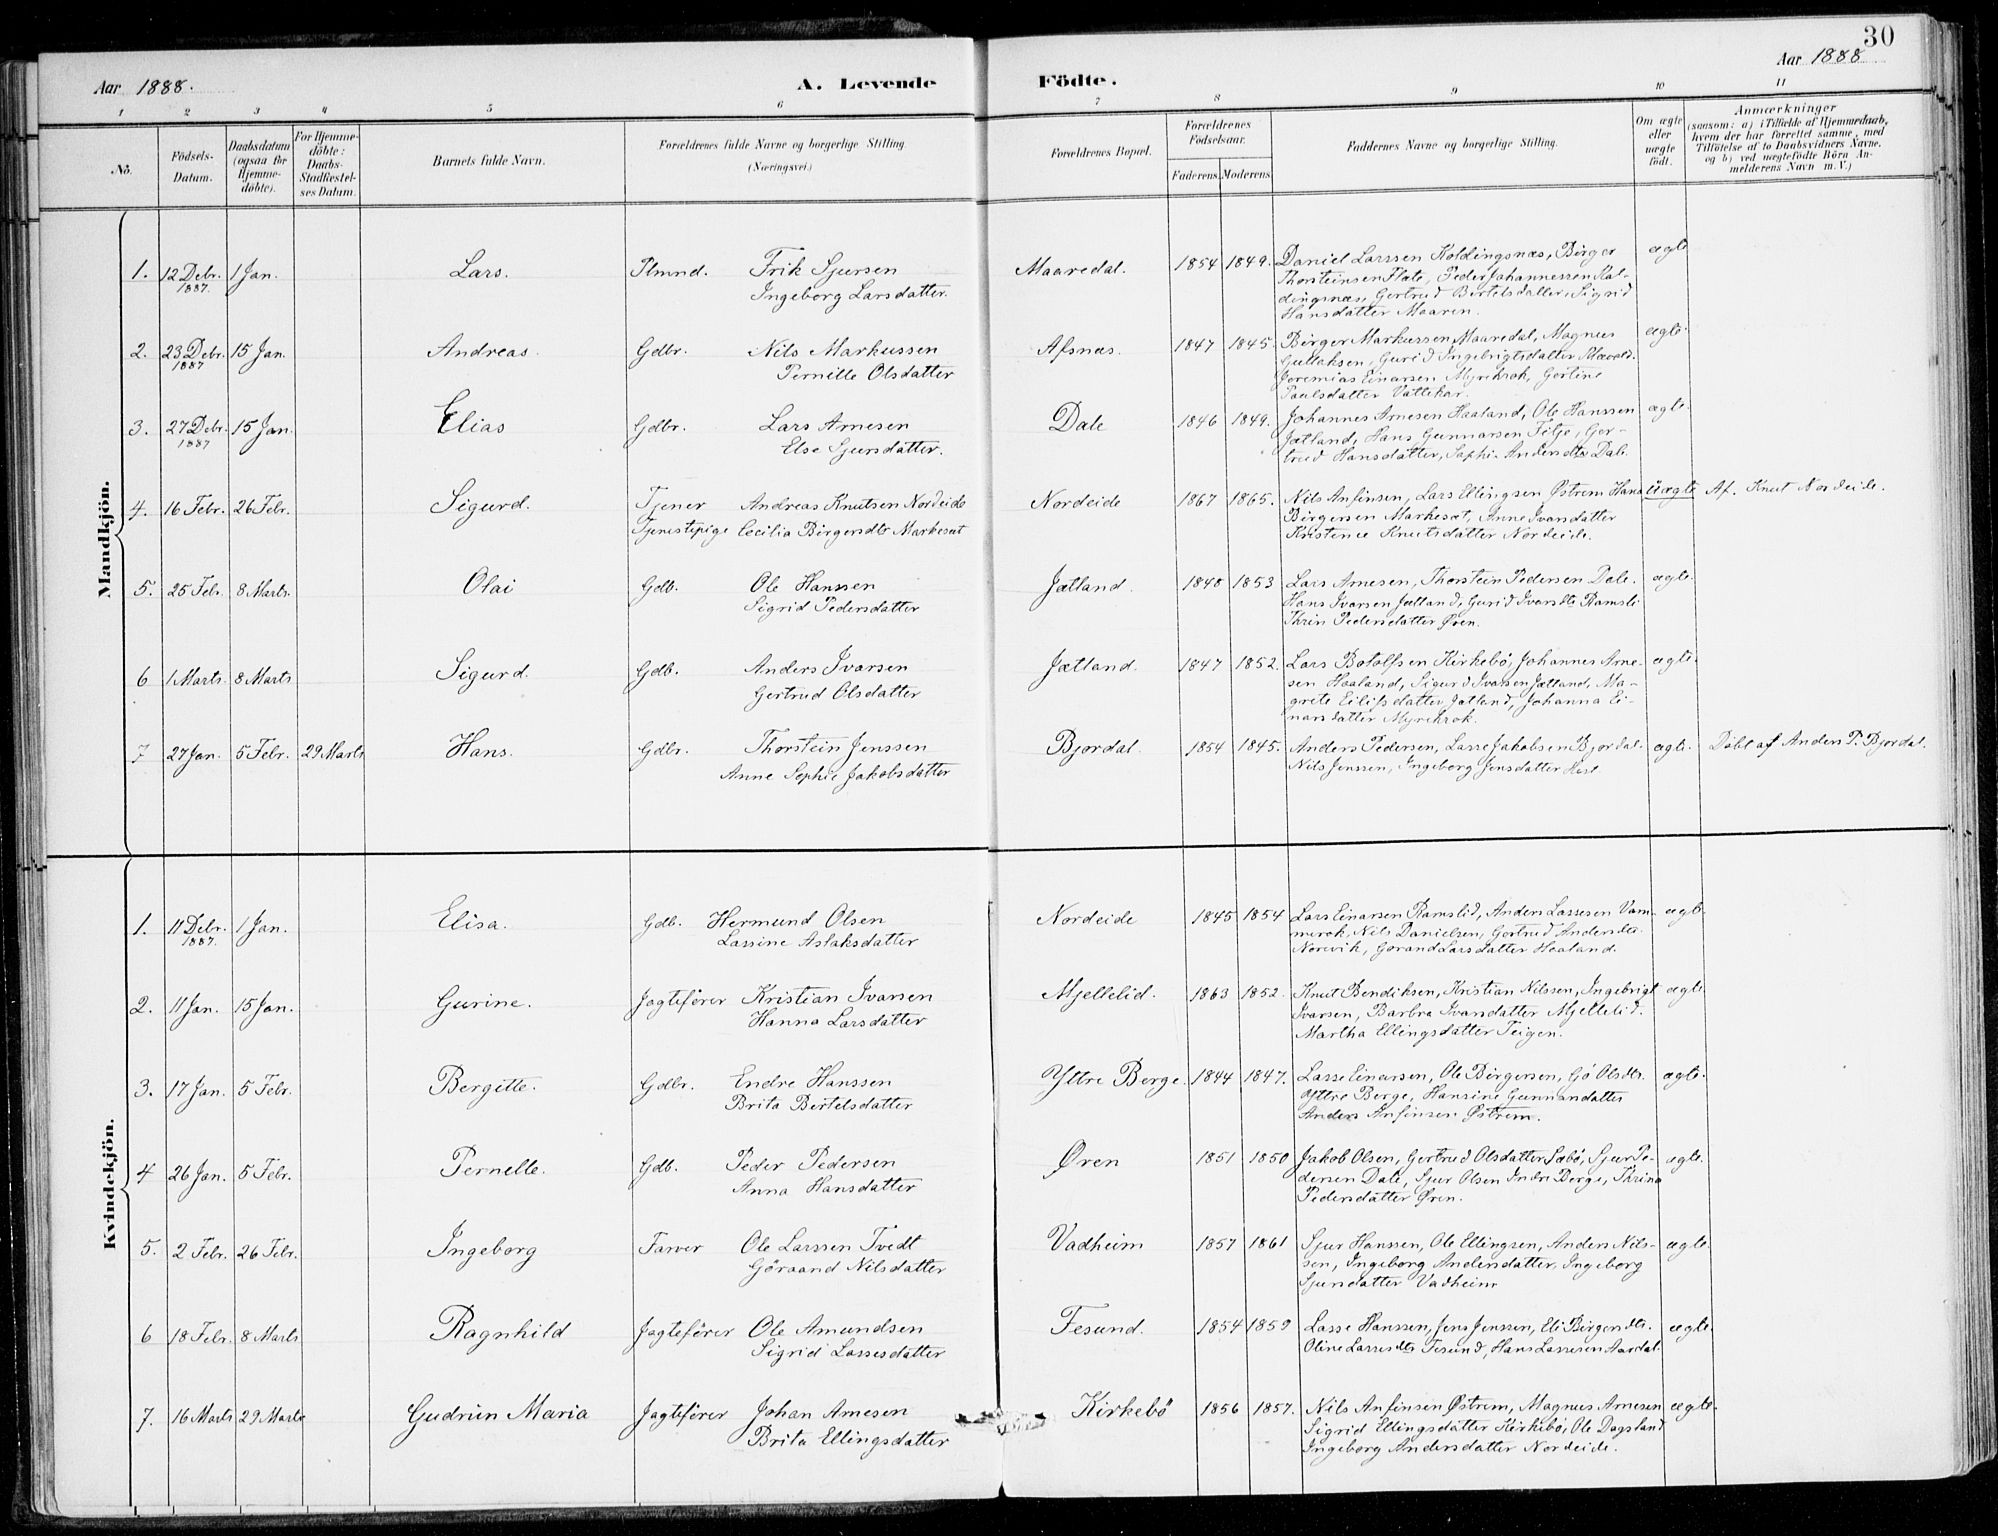 30
Aar 1888.
A. Levende
Födte.
Aar 1888
1 2 3 4 5 6 7 8 9 10 11
No.
Födsels-Datum.
Daabsdatum (ogsaa for Hjemmedöbte).
For Hjemmedöbte: Daabs-Stadfestelses Datum.
Barnets fulde Navn.
Forældrenes fulde Navne og borgerlige Stilling. (Næringsvei.)
Forældrenes Bopæl.
Forældrenes Födselsaar.
Faderens. Moderens.
Faddernes Navne og borgerlige Stilling.
Om ægte eller uægte födt.
Anmærkninger
(saasom: a) i Tilfælde af Hjemmedaab, hvem der har forrettet samme, med Tilföielse af to Daabsvidners Navne, og b) ved uægtefödte Börn Anmelderens Navn m. V.)
Mandkjön.
1. 12 Debr. 1887. 1 Jan. Lars. Plmnd. Frik Sjursen
Ingeborg Larsdatter. Maaredal. 1854 1849. Daniel Larssen Koldingsnæs, Börger
Thorsteinsen Flate, Peder Johannessen Kol-
dingsnæs, Gertrud Bertelsdatter, Sigrid
Hansdatter Maaren. ægte
2. 23 Debr. 1887 15 Jan. Andreas. Gdbr. Nils Markussen
Pernille Olsdatter Afsnæs. 1847 1845. Börger Markussen Maaredal, Magnus
Gullaksen, Gurid Ingebrigtsdatter
Jeremias Einarsen Myrekrok, Gertine
Paulsdatter Vattekar. ægte.
3. 27 Debr. 1887 15 Jan. Elias Gdbr. Lars Arnesen
Else Sjursdatter. Dale 1846 1849. Johannes Arnesen Haaland, Ole Hanssen
Jætland, Hans Gunnarsen Titje, Ger-
trud Hansdatter, Sophie Andersdtr Dale. ægte.
4. 16 Febr. 26 Febr. Sigurd. Tjener Andreas Knutsen Nordeide
Tjenestepige Cecilia Börgersdtr Markeset Nordeide 1867 1865. Nils Anfinsen, Lars Ellingsen Østrem Hans
Börgersen Markesæt, Anne Ivarsdatter
Kristense Knutsdatter Nordeide. Uægte Af. Knut Nordeide.
5. 25 Febr. 8 Marts. Olai Gdb. Ole Hanssen
Sigrid Pedersdatter Jætland. 1848 1853 Lars Arnesen, Thorstein Pedersen Dale.
Hans Ivarsen Jætland, Gurid Ivarsdtr Ramsli
Thrin Pedersdatter Øren. ægte.
6 1 Marts. 8 Marts Sigurd. Gdb. Anders Ivarsen
Gertrud Olsdatter Jætland. 1847 1852. Lars Botolfsen Kirkebö, Johannes Arne-
sen Haaland, Sigurd Ivarsen Jætland, Ma-
grete Eilifsdatter Jætland, Johanna Ei-
narsdatter Myrekrok. ægte.
7 27 Jan. 5 Febr. 29 Marts Hans. Gdbr. Thorstein Jenssen
Anne Sophie Jakobsdatter Bjordal. 1854 1845. Anders Pedersen, Lasse Jakobsen Bjordal.
Nils Jenssen, Ingeborg Jensdatter Hest ægte. Döbt af Anders P. Bjordal.
Kvindekjön.
1. 11 Debr. 1887. 1 Jan. Elisa. Gdb. Hermund Olsen
Lassine Aslaksdatter Nordeide 1845 1854 Lars Einarsen Ramslid, Anders Lassesen Vam-
merok Nils Danielsen, Gertrud Andersdtr.
Norevik, Gorand Larsdatter Haaland. ægte
2. 11 Jan. 15 Jan. Gurine. Jagtefører Kristian Ivarsen
Hanna Larsdatter Mjellelid. 1863 1852. Knut Bendiksen, Kristian Nilssen, Ingebrigt
Ivarsen, Barbra Ivarsdatter Mjellelid.
Martha Ellingsdatter Teigen. ægte.
3. 17 Jan. 5 Febr. Bergitte. Gdbr. Endre Hanssen
Brita Bertelsdatter Yttre Berge. 1844 1847. Lasse Einarsen, Ole Börgersen, Gö Olsdtr.
Yttre Berge, Hansine Gunnarsdatter
Anders Anfinsen Østrem. ægte.
4 26 Jan. 5 Febr. Pernelle. Gdb. Peder Pedersen
Anna Hansdatter Øren 1851 1850 Jakob Olsen, Gertrud Olsdatter Sæbö, Sjur Pe-
dersen Dale, Sjur Olsen Indre Berge, Thrina
Pedersdatter Øren. ægte.
5. 2 Febr. 26 Febr. Ingeborg Farver Ole Larssen Tvedt
Göraand Nilsdatter Vadheim 1857 1861 Sjur Hanssen, Ole Ellingsen, Anders Nils-
sen, Ingeborg Andersdatter, Ingeborg
Sjursdatter Vadheim ægte.
6 18 Febr. 8 Marts Ragnhild Jagtefører Ole Amundsen
Sigrid Lassesdatter Fesund. 1854 1859 Lasse Hanssen, Jens Jenssen, Eli Börgersdtr.
Oline Lassesdtr Fesund, Hans Lassesen Aardal. ægte.
7. 16 Marts 29 Marts Gudrun Maria Jagtefører Johan Arnesen
Brita Ellingsdatter Kirkebö 1856 1857. Nils Anfinsen Østrem, Magnus Arnesen
Sigrid Ellingsdatter Kirkebö, Ole Dagsland
Ingeborg Andersdatter Nordeide. ægte.